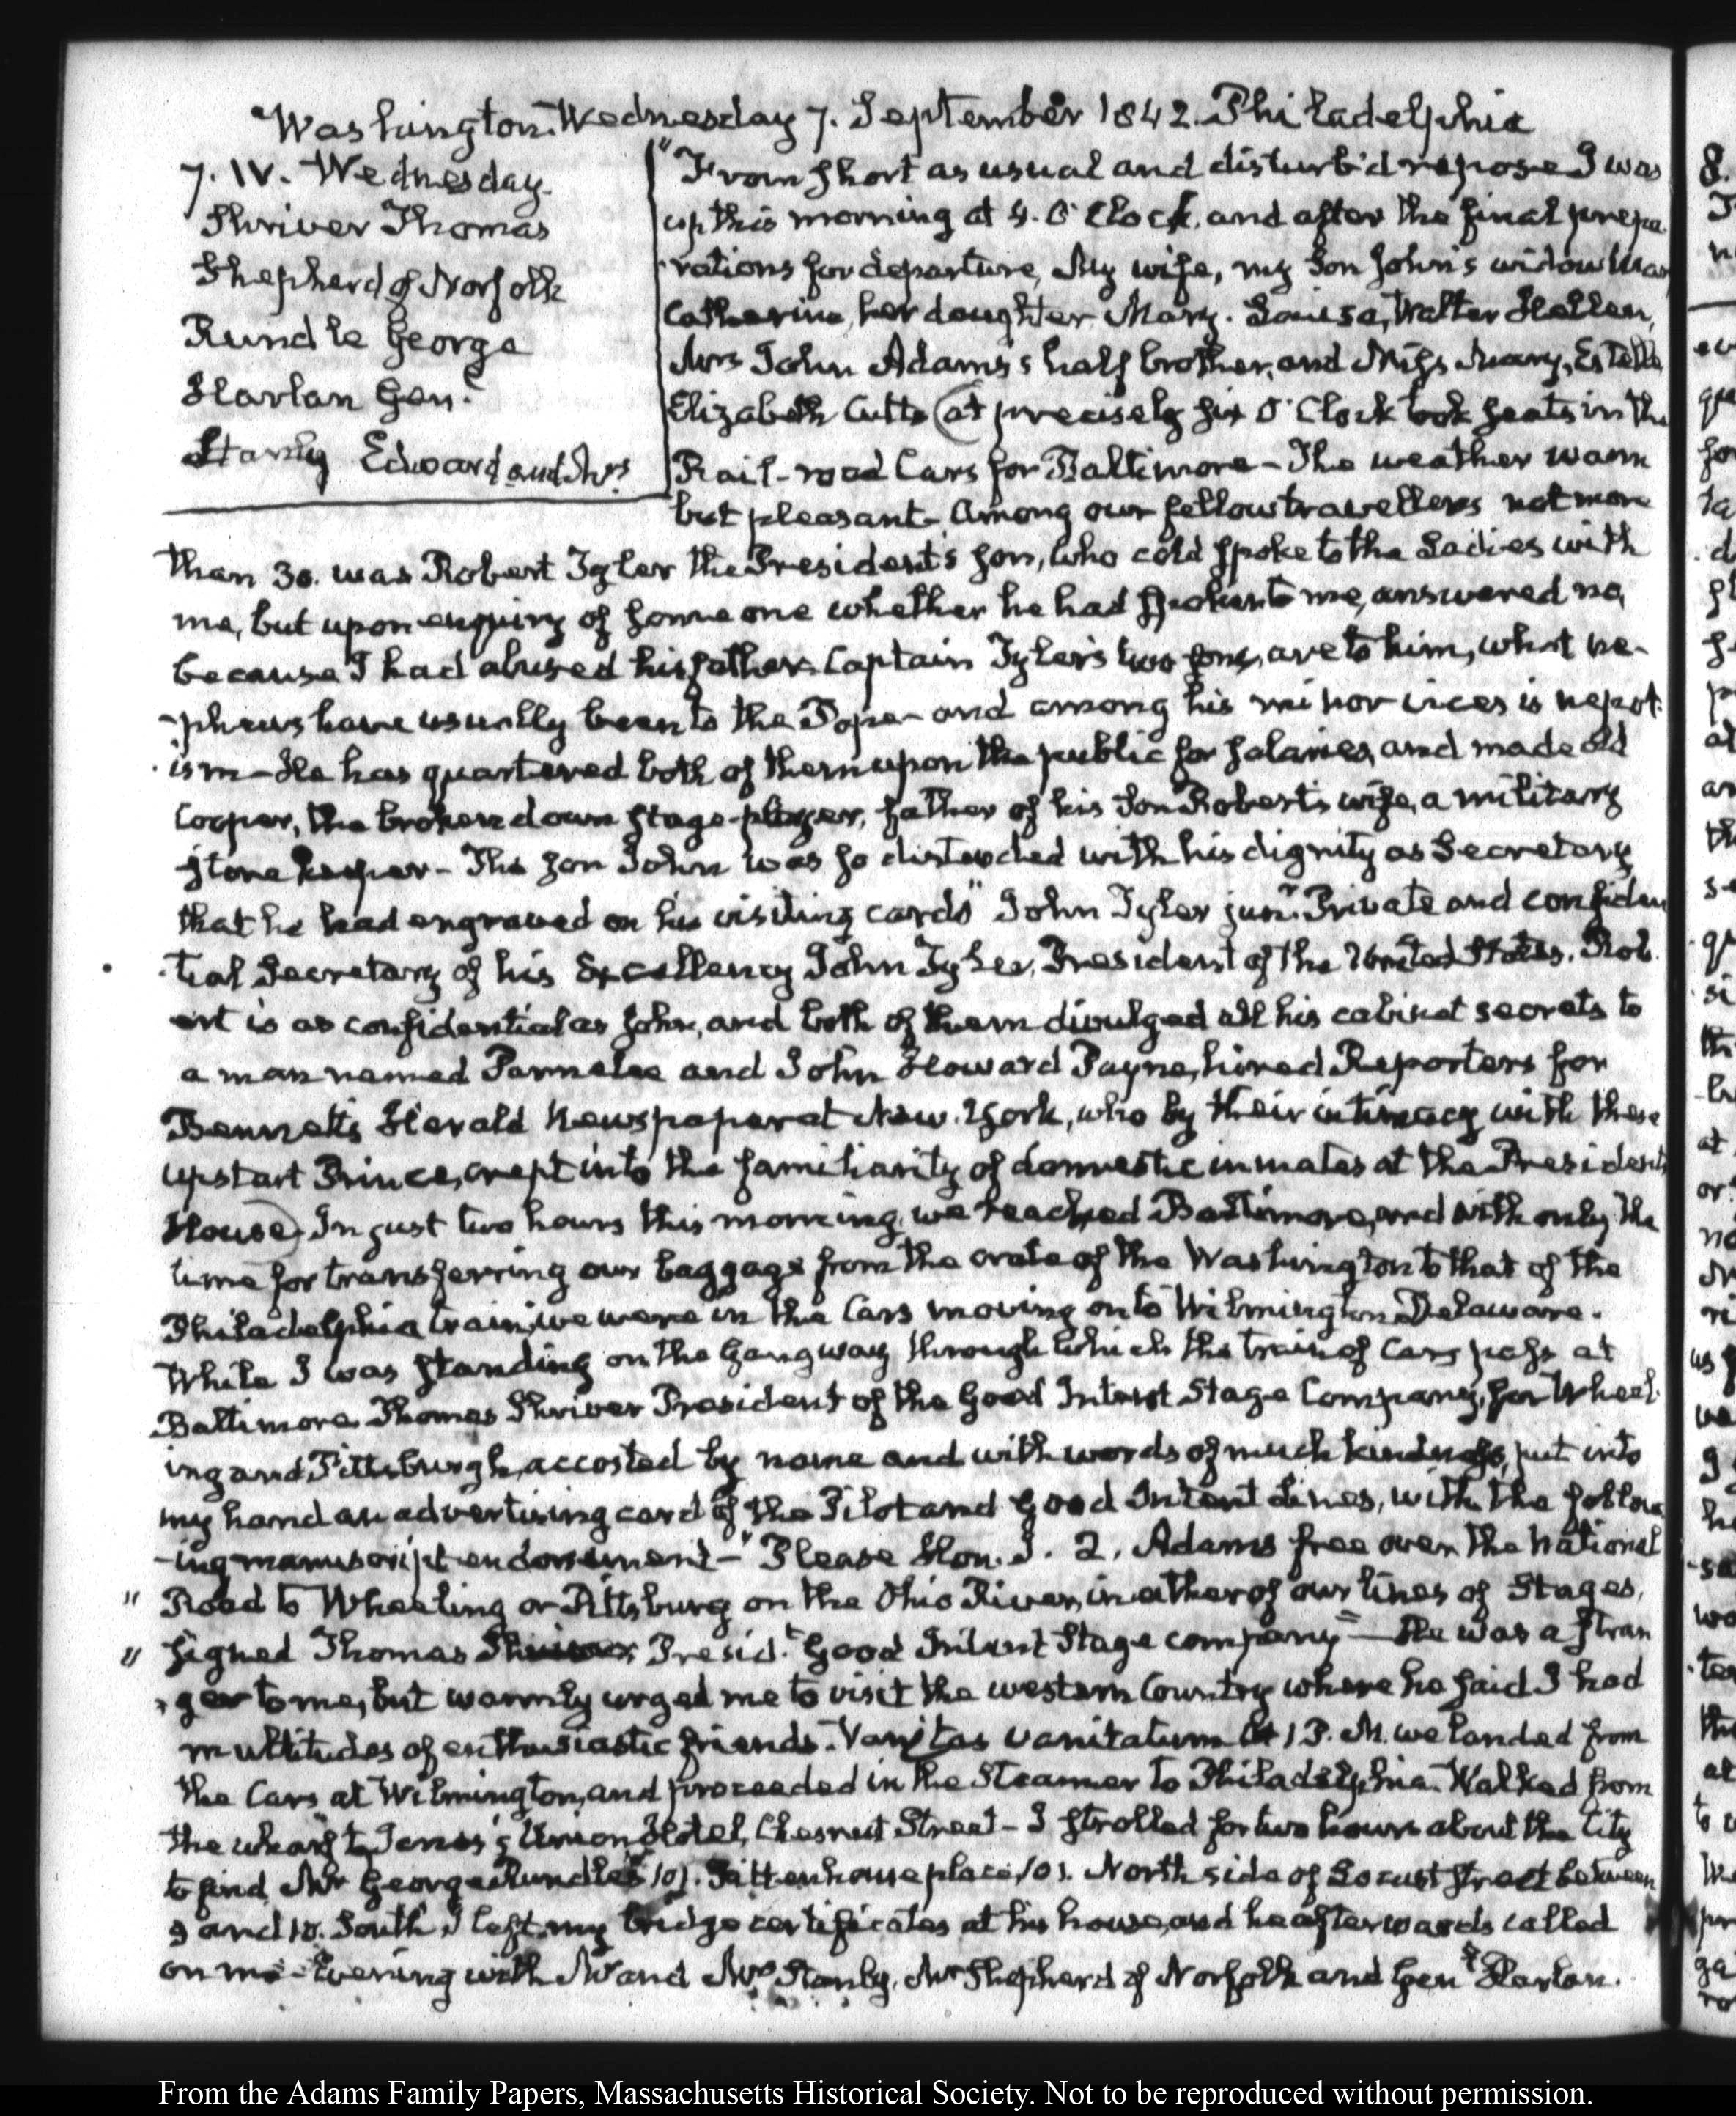 Washington. Wednesday 7. September 1842. Philadelphia
7. IV. Wednesday.
Shriver Thomas
Shepherd of Norfolk
Rundle George
Harlan Genl.
Stanly Edward and Mrs
From short as usual and disturb'd repose I was
up this morning at 4. O'Clock, and after the final prepa-
rations for departure, My wife, my Son John's widow Mary
Catherine, her daughter Mary. Louisa, Walter Hellen,
Mrs John Adams's half brother, and Miss Mary, Estelle
Elizabeth Cutts (at precisely six O'Clock took seats in the
Rail-road Cars for Baltimore - The weather warm
but pleasant - Among our fellow travellers not more
than 30. was Robert Tyler the President's son, who cold spoke to the Ladies with
me, but upon enquiry of some one whether he had spoken to me, answered no,
because I had abused his father. Captain Tyler's two sons, are to him, what ne-
-phews have usually been to the Pope - and among his minor vices is nepot-
ism - He has quartered both of them upon the public for salaries, and made old
Cooper, the broken down stage-player, father of his Son Robert's wife, a military
storekeeper - The son John was so distended with his dignity as Secretary
that he had engraved on his visiting cards "John Tyler junr. Private and confiden
tial Secretary of his Excellency John Tyler, President of the United States. Rob-
ert is as confidential as John, and both of them divulged all his cabinet secrets to
a man named Parmelee and John Howard Payne, hired Reporters for
Bennett's Herald Newspaper at New. York, who by their intimacy with these
upstart Princes, crept into the familiarity of domestic inmates at the President's
House) In just two hours this morning, we reached Baltimore, and with only the
time for transferring our baggage from the crate of the Washington to that of the
Philadelphia train, we were in the Cars moving on to Wilmington Delaware.
While I was standing on the Gangway through which the train of Cars pass at
Baltimore Thomas Shriver President of the Good Intent Stage Company, for Wheel-
ing and Pittsburgh, accosted by name and with words of much kindness, put into
my hand an advertising card of the Pilot and Good Intent Lines, with the follow
-ing manuscript endorsement - "Please Hon. J. Q. Adams free over the National
" Road to Wheeling or Pittsburg on the Ohio River, in either of our lines of Stages,
" signed Thomas Shriver, Presidt. Good Intent Stage company" - He was a stran
ger to me, but warmly urged me to visit the western Country where he said I had
multitudes of enthusiastic friends. Vanitas vanitatum At 1 P. M. we landed from
the Cars at Wilmington, and proceeded in the Steamer to Philadelphia. Walked from
the wharf to Jones's Union Hotel, Chesnut Street - I strolled for two hours about the City
to find Mr George Rundle's 101. Rittenhouse place 101. North side of Locust street between
9 and 10. South. I left my bridge certificates at his house, and he afterwards called
on me - Evening with Mr and Mrs Stanly, Mr Shepherd of Norfolk and Genl Harlan.
From the Adams Family Papers, Massachusetts Historical Society. Not to be reproduced without permission.